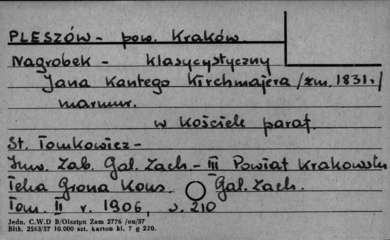 PLESZÓW - pow. Kraków.
Nagrobek - klasycystyczny
Jana Kantego Kirchmajera /zm. 1831 r/
marmur.
w kościele paraf.
St. Tomkowicz -
Inw. Zab. Gal. Zach. - III Powiat Krakowski
Teka Grona Kons. Gal. Zach.
Tom. II r. 1906, s. 210
Jedn. C.W.D B/Olsztyn Zam 2776 /on/57
Błtk. 2563/57 10.000 szt. karton kl. 7 g 220.